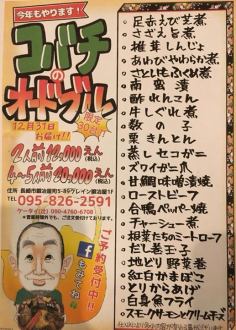 今年もやります!
コバチ
の
オードブル
限定
30台
12月31日
お届け!!
2人前 12,000えん
(税込)
4~5人前 20,000えん
(税込)
TEL
095-826-2591
ケータイ(辻) 090-4760-6708
ご予約受付中!!
f
もみてね
足赤えび芝煮
さざえ旨煮
椎茸しんじょ
あわびやわらか煮
さといもふくめ煮
南蛮漬
酢れんこん
牛しぐれ煮
数の子
栗きんとん
蒸しセコガニ
ズワイガニ爪
甘鯛味噌漬焼
ローストビーフ
合鴨ペッパー焼
チャーシュー煮
根菜たちのミートローフ
だし巻玉子
地どり野菜巻
紅白かまぼこ
とりからあげ
白身魚フライ
スモークサーモンクリームチーズ